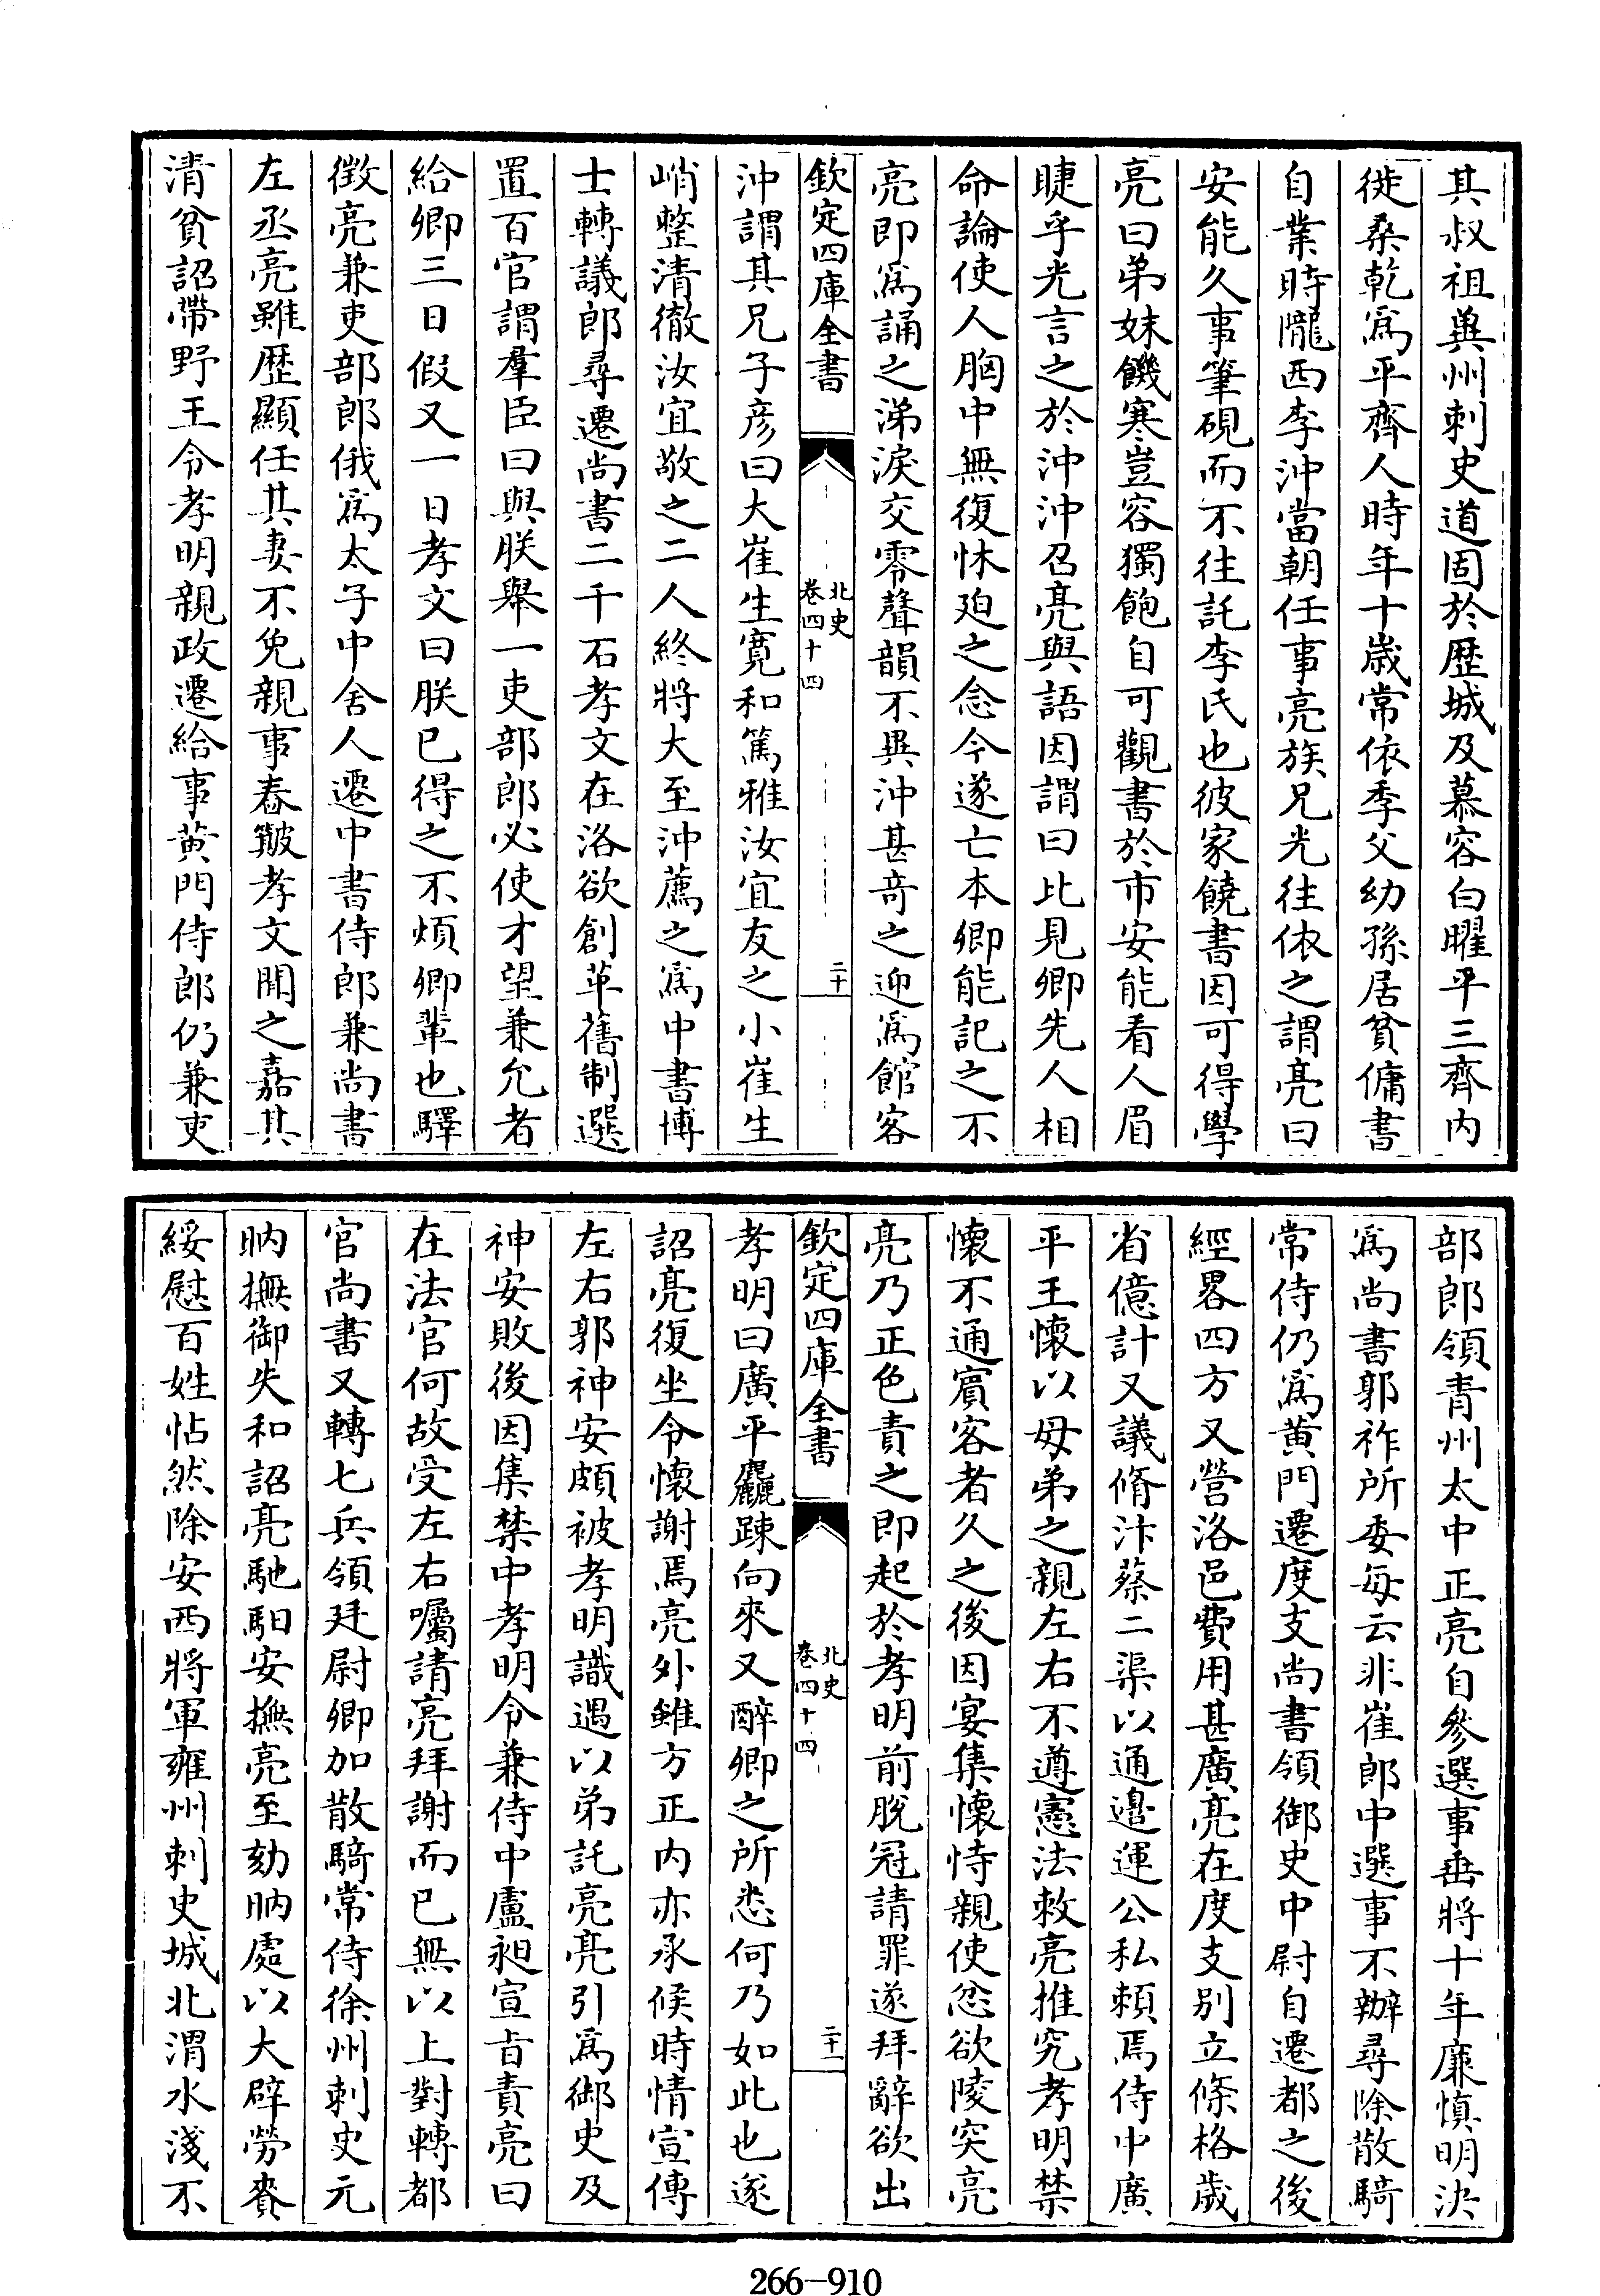 其叔祖兾州刺史道固於歴城及慕容白曜平三齊内
徙桑乾爲平齊人時年十歳常依季父幼孫居貧傭書
自業時隴西李沖當朝任事亮族兄光往依之謂亮曰
安能久事筆硯而不往託李氏也彼家饒書因可得學
亮曰弟妹饑寒豈容獨飽自可觀書於市安能看人眉
睫乎光言之於沖沖召亮與語因謂曰比見卿先人相
命論使人胸中無復怵廹之念今遂亡本卿能記之不
亮即爲誦之涕淚交零聲韻不異沖甚竒之迎爲館客
欽定四庫全書
北史
卷四十四
二十
沖謂其兄子彦曰大崔生寛和篤雅汝宜友之小崔生
峭整清徹汝宜敬之二人終將大至沖薦之爲中書博
士轉議郎尋遷尚書二千石孝文在洛欲創革舊制選
置百官謂羣臣曰與朕舉一吏部郎必使才望兼允者
給卿三日假又一日孝文曰朕已得之不煩卿輩也驛
徴亮兼吏部郎俄爲太子中舍人遷中書侍郎兼尚書
左丞亮雖歴顯任其妻不免親事舂簸孝文聞之嘉其
清貧詔帶野王令孝明親政遷給事黄門侍郎仍兼吏
部郎領青州太中正亮自參選事垂將十年廉慎明決
爲尚書郭祚所委每云非崔郎中選事不辦尋除散騎
常侍仍爲黄門遷度支尚書領御史中尉自遷都之後
經畧四方又營洛邑費用甚廣亮在度支别立條格歲
省億計又議脩汴蔡二渠以通邉運公私頼焉侍中廣
平王懷以母弟之親左右不遵憲法敕亮推究孝明禁
懷不通賔客者久之後因宴集懷恃親使忿欲陵突亮
亮乃正色責之即起於孝明前脫冠請罪遂拜辭欲出
欽定四庫全書
北史
卷四十四
二十一
孝明曰廣平麤疎向來又醉卿之所悉何乃如此也遂
詔亮復坐令懷謝焉亮外雖方正内亦承候時情宣傳
左右郭神安頗被孝明識遇以弟託亮亮引爲御史及
神安敗後因集禁中孝明令兼侍中盧昶宣旨責亮曰
在法官何故受左右囑請亮拜謝而已無以上對轉都
官尚書又轉七兵領廷尉卿加散騎常侍徐州刺史元
昞撫御失和詔亮馳馹安撫亮至劾昞處以大辟勞賚
綏慰百姓帖然除安西將軍雍州刺史城北渭水淺不
266-910